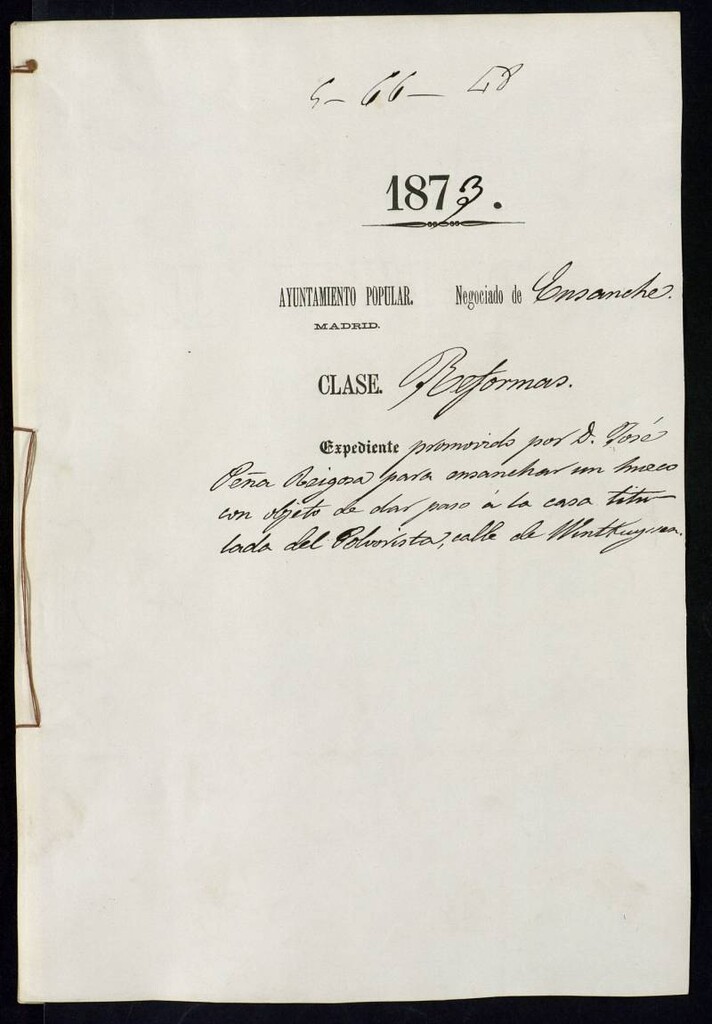 5-66-48
1873.
AYUNTAMIENTO POPULAR. Negociado de Ensanche.
MADRID.
CLASE. Reformas.
Expediente promovido por D. José
Peña Reigosa para ensanchar un hueco
con objeto de dar paso á la casa titu-
lada del Polvorista, calle de